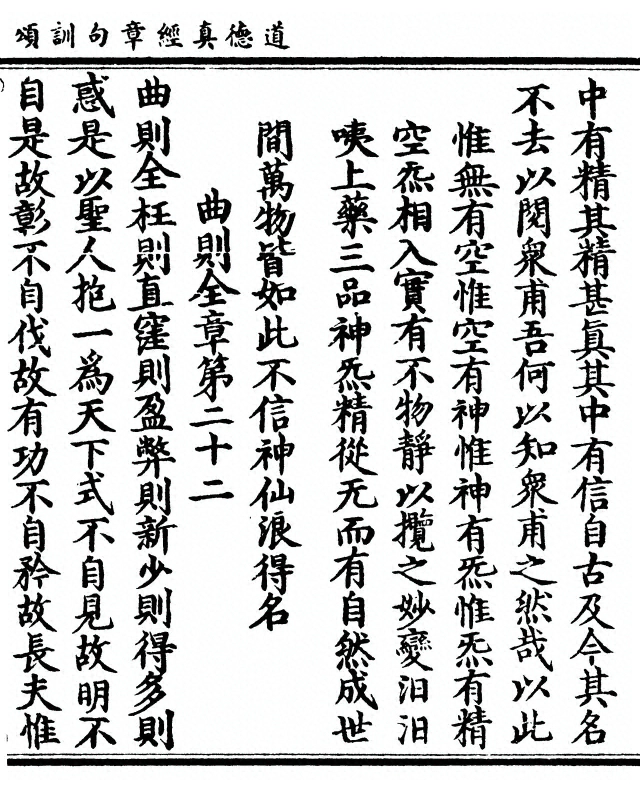 道德真經章句訓頌
中有精其精甚眞其中有信自古及今其名
不去以閱衆甫吾何以知衆甫之然哉以此
惟無有空惟空有神惟神有炁惟炁有精
空炁相入實有不物靜以攬之妙變汨汨
咦上藥三品神炁精從无而有自然成世
間萬物皆如此不信神仙浪得名
曲則全章第二十二
曲則全枉則直窪則盈弊則新少則得多則
惑是以聖人抱一爲天下式不自見故明不
自是故彰不自伐故有功不自矜故長夫惟